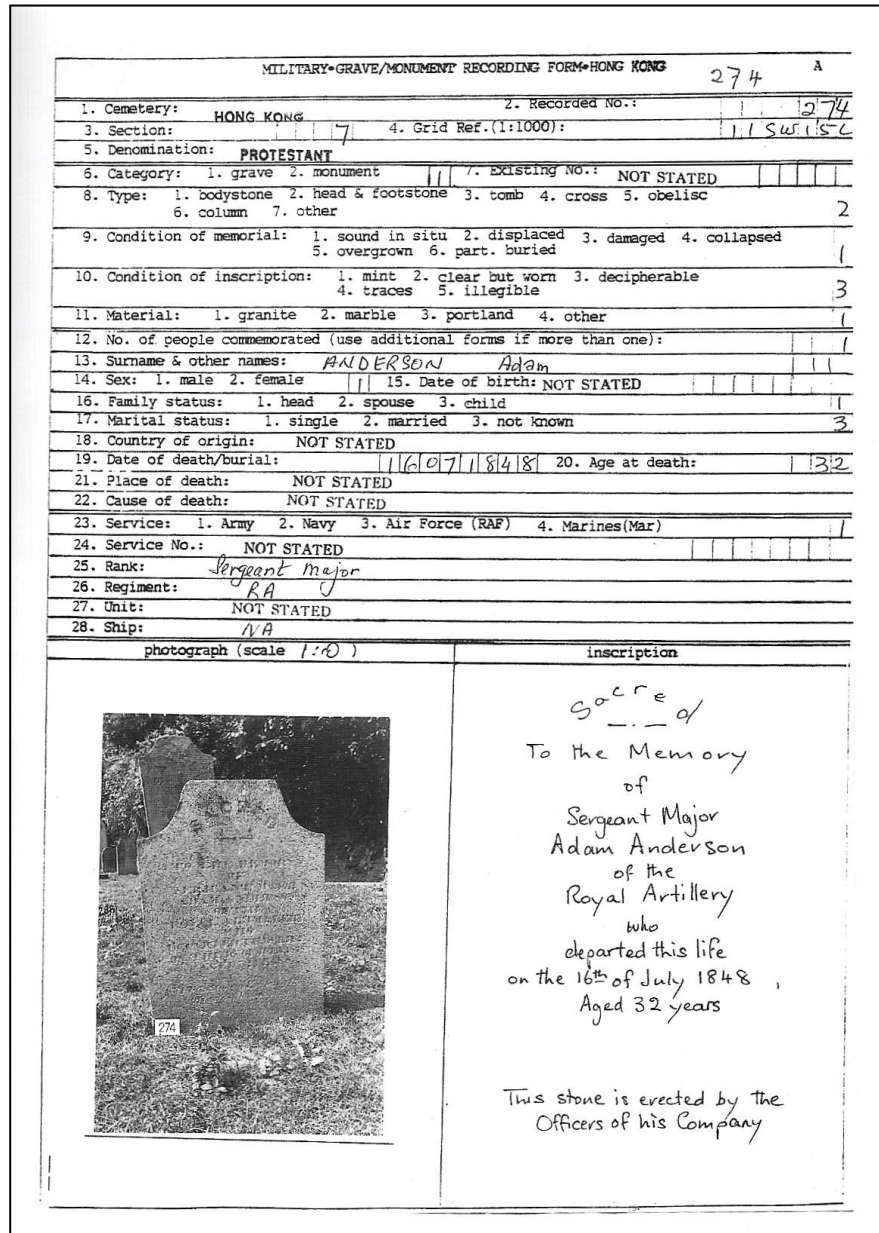 MILITARY•GRAVE/MONUMENT RECORDING FORM•HONG KONG 274 A
1. Cemetery: HONG KONG 2. Recorded No.: 274
3. Section: 7 4. Grid Ref.(1:1000): 11SW15C
5. Denomination: PROTESTANT
6. Category: 1. grave 2. monument 1 7. Existing No.: NOT STATED
8. Type: 1. bodystone 2. head & footstone 3. tomb 4. cross 5. obelisc
6. column 7. other 2
9. Condition of memorial: 1. sound in situ 2. displaced 3. damaged 4. collapsed
5. overgrown 6. part. buried 1
10. Condition of inscription: 1. mint 2. clear but worn 3. decipherable
4. traces 5. illegible 3
11. Material: 1. granite 2. marble 3. portland 4. other 1
12. No. of people commemorated (use additional forms if more than one): 1
13. Surname & other names: ANDERSON Adam
14. Sex: 1. male 2. female 1 15. Date of birth: NOT STATED
16. Family status: 1. head 2. spouse 3. child 1
17. Marital status: 1. single 2. married 3. not known 3
18. Country of origin: NOT STATED
19. Date of death/burial: 16071848 20. Age at death: 32
21. Place of death: NOT STATED
22. Cause of death: NOT STATED
23. Service: 1. Army 2. Navy 3. Air Force (RAF) 4. Marines(Mar) 1
24. Service No.: NOT STATED
25. Rank: Sergeant Major
26. Regiment: RA
27. Unit: NOT STATED
28. Ship: NA
photograph (scale 1:10)
SACRED
274
inscription
Sacred
To the Memory
of
Sergeant Major
Adam Anderson
of the
Royal Artillery
who
departed this life
on the 16th of July 1848,
Aged 32 years
This stone is erected by the
Officers of his Company